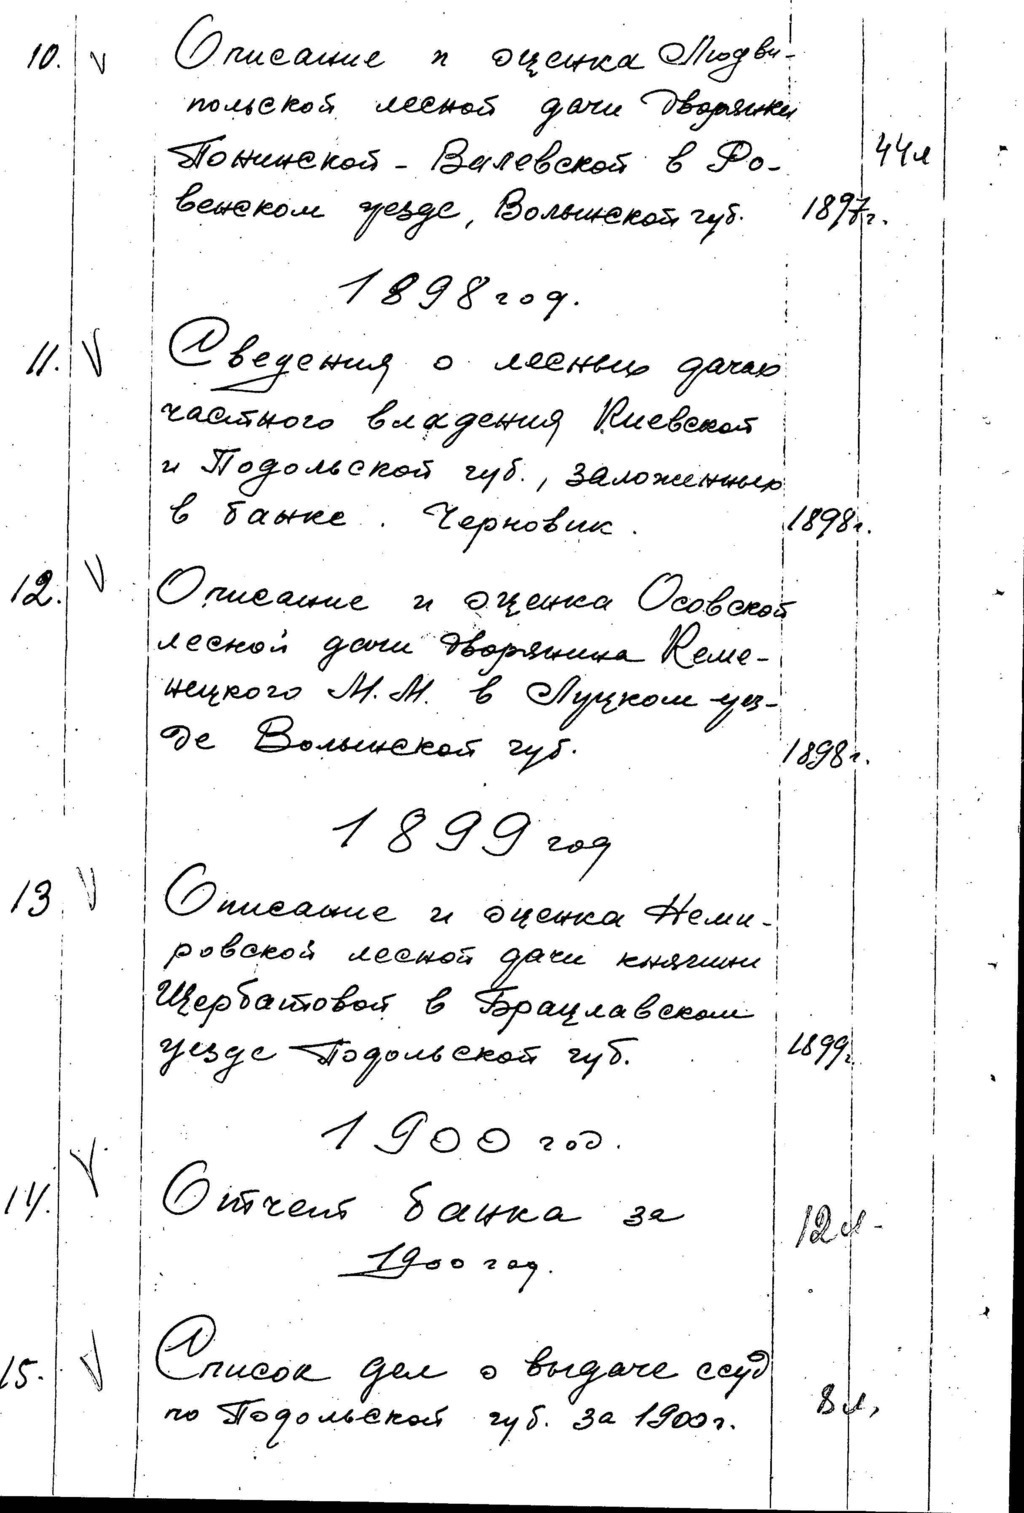 10. V Описание и оценка Людви-
польской лесной дачи дворянки
Понинской - Валевской в Ро- 44л
венском уезде, Волынской губ. 1897г.
1898 год.
11. V Сведения о лесных дачах
частного владения Киевской
и Подольской губ., заложенных
в банке. Черновик. 1898г.
12. V Описание и оценка Осовской
лесной дачи дворянина Кеме-
нецкого М.М. в Луцком уез-
де Волынской губ. 1898г.
1899 год
13 V Описание и оценка Неми-
ровской лесной дачи княгини
Щербатовой в Брацлавском
уезде Подольской губ. 1899г.
1900 год.
14. V Отчет банка за 12л.
1900 год.
15. V Список дел о выдаче ссуд
по Подольской губ. за 1900г. 8л.